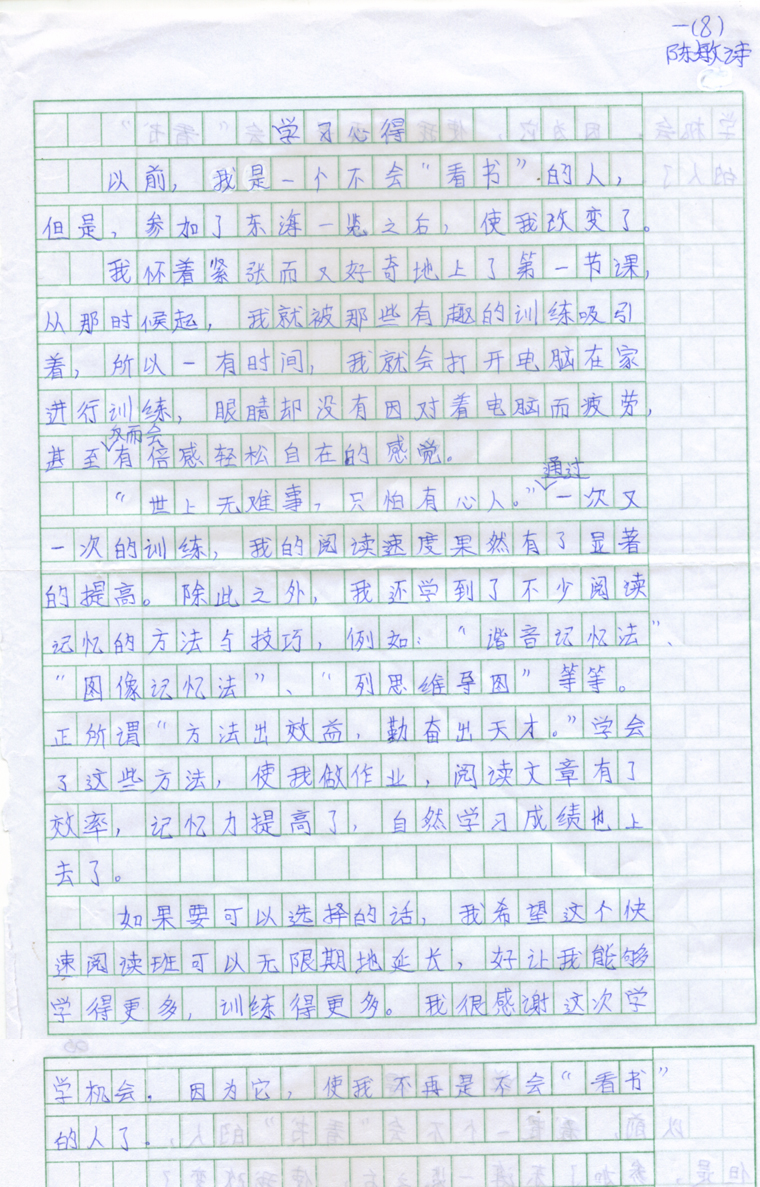 一(8)
陈敏诗
学习心得
以前，我是一个不会“看书”的人，
但是，参加了东涛一览之后，使我改变了。
我怀着紧张而又好奇地上了第一节课，
从那时候起，我就被那些有趣的训练吸引
着，所以一有时间，我就会打开电脑在家
进行训练，眼睛却没有因对着电脑而疲劳，
反而会
甚至有倍感轻松自在的感觉。
通过
“世上无难事，只怕有心人。”一次又
一次的训练，我的阅读速度果然有了显著
的提高。除此之外，我还学到了不少阅读
记忆的方法与技巧，例如：“谐音记忆法”、
“图像记忆法”、“列思维导图”等等。
正所谓“方法出效益，勤奋出天才。”学会
了这些方法，使我做作业，阅读文章有了
效率，记忆力提高了，自然学习成绩也上
去了。
如果要可以选择的话，我希望这个快
速阅读班可以无限期地延长，好让我能够
学得更多，训练得更多。我很感谢这次学
学机会．因为它，使我不再是不会“看书”
的人了．